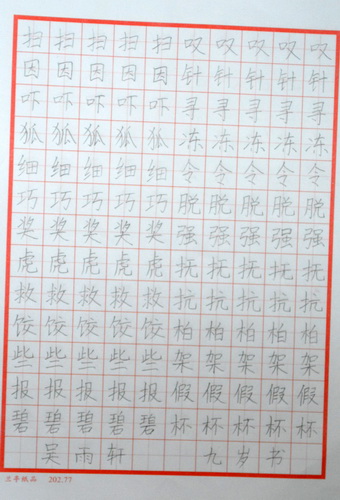 扫扫扫扫扫叹叹叹叹叹
因因因因因针针针针针
吓吓吓吓吓寻寻寻寻寻
狐狐狐狐狐冻冻冻冻冻
细细细细细令令令令令
巧巧巧巧巧脱脱脱脱脱
奖奖奖奖奖强强强强强
虎虎虎虎虎抚抚抚抚抚
救救救救救抗抗抗抗抗
饺饺饺饺饺柏柏柏柏柏
些些些些些架架架架架
报报报报报假假假假假
碧碧碧碧碧杯杯杯杯杯
吴雨轩 九岁书
兰亭纸品 202.77